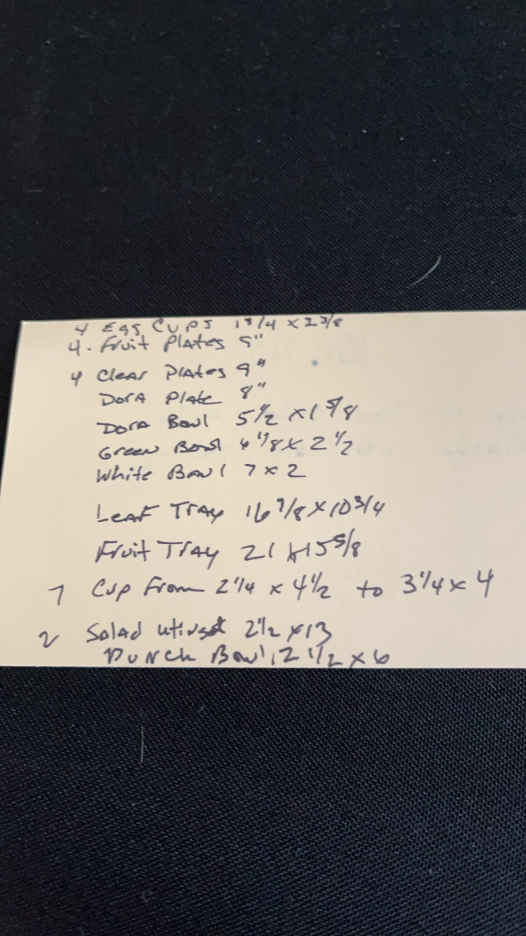 4 Egg Cups 1 3/4 x 2 3/8
4. Fruit Plates 9"
4 Clear Plates 9"
Dora Plate 8"
Dora Bowl 5 1/2 x 1 5/8
Green Bowl x 2 1/2
White Bowl 7 x 2
Leaf Tray 16 7/8 x 10 3/4
Fruit Tray 21 x 15 5/8
7 Cup From 2 1/4 x 4 1/2 to 3 1/4 x 4
2 Salad 2 1/2 x 13
Punch Bowl 12 1/2 x 6